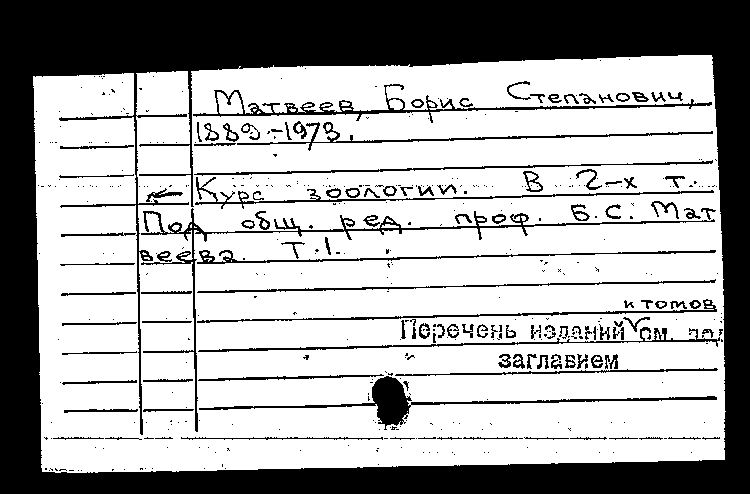 Матвеев, Борис Степанович,
1889-1973.
← Курс зоологии. В 2-х т.
Под общ. ред. проф. Б.С. Мат
веева. Т.1.
и томов
Перечень изданий см. под
заглавием